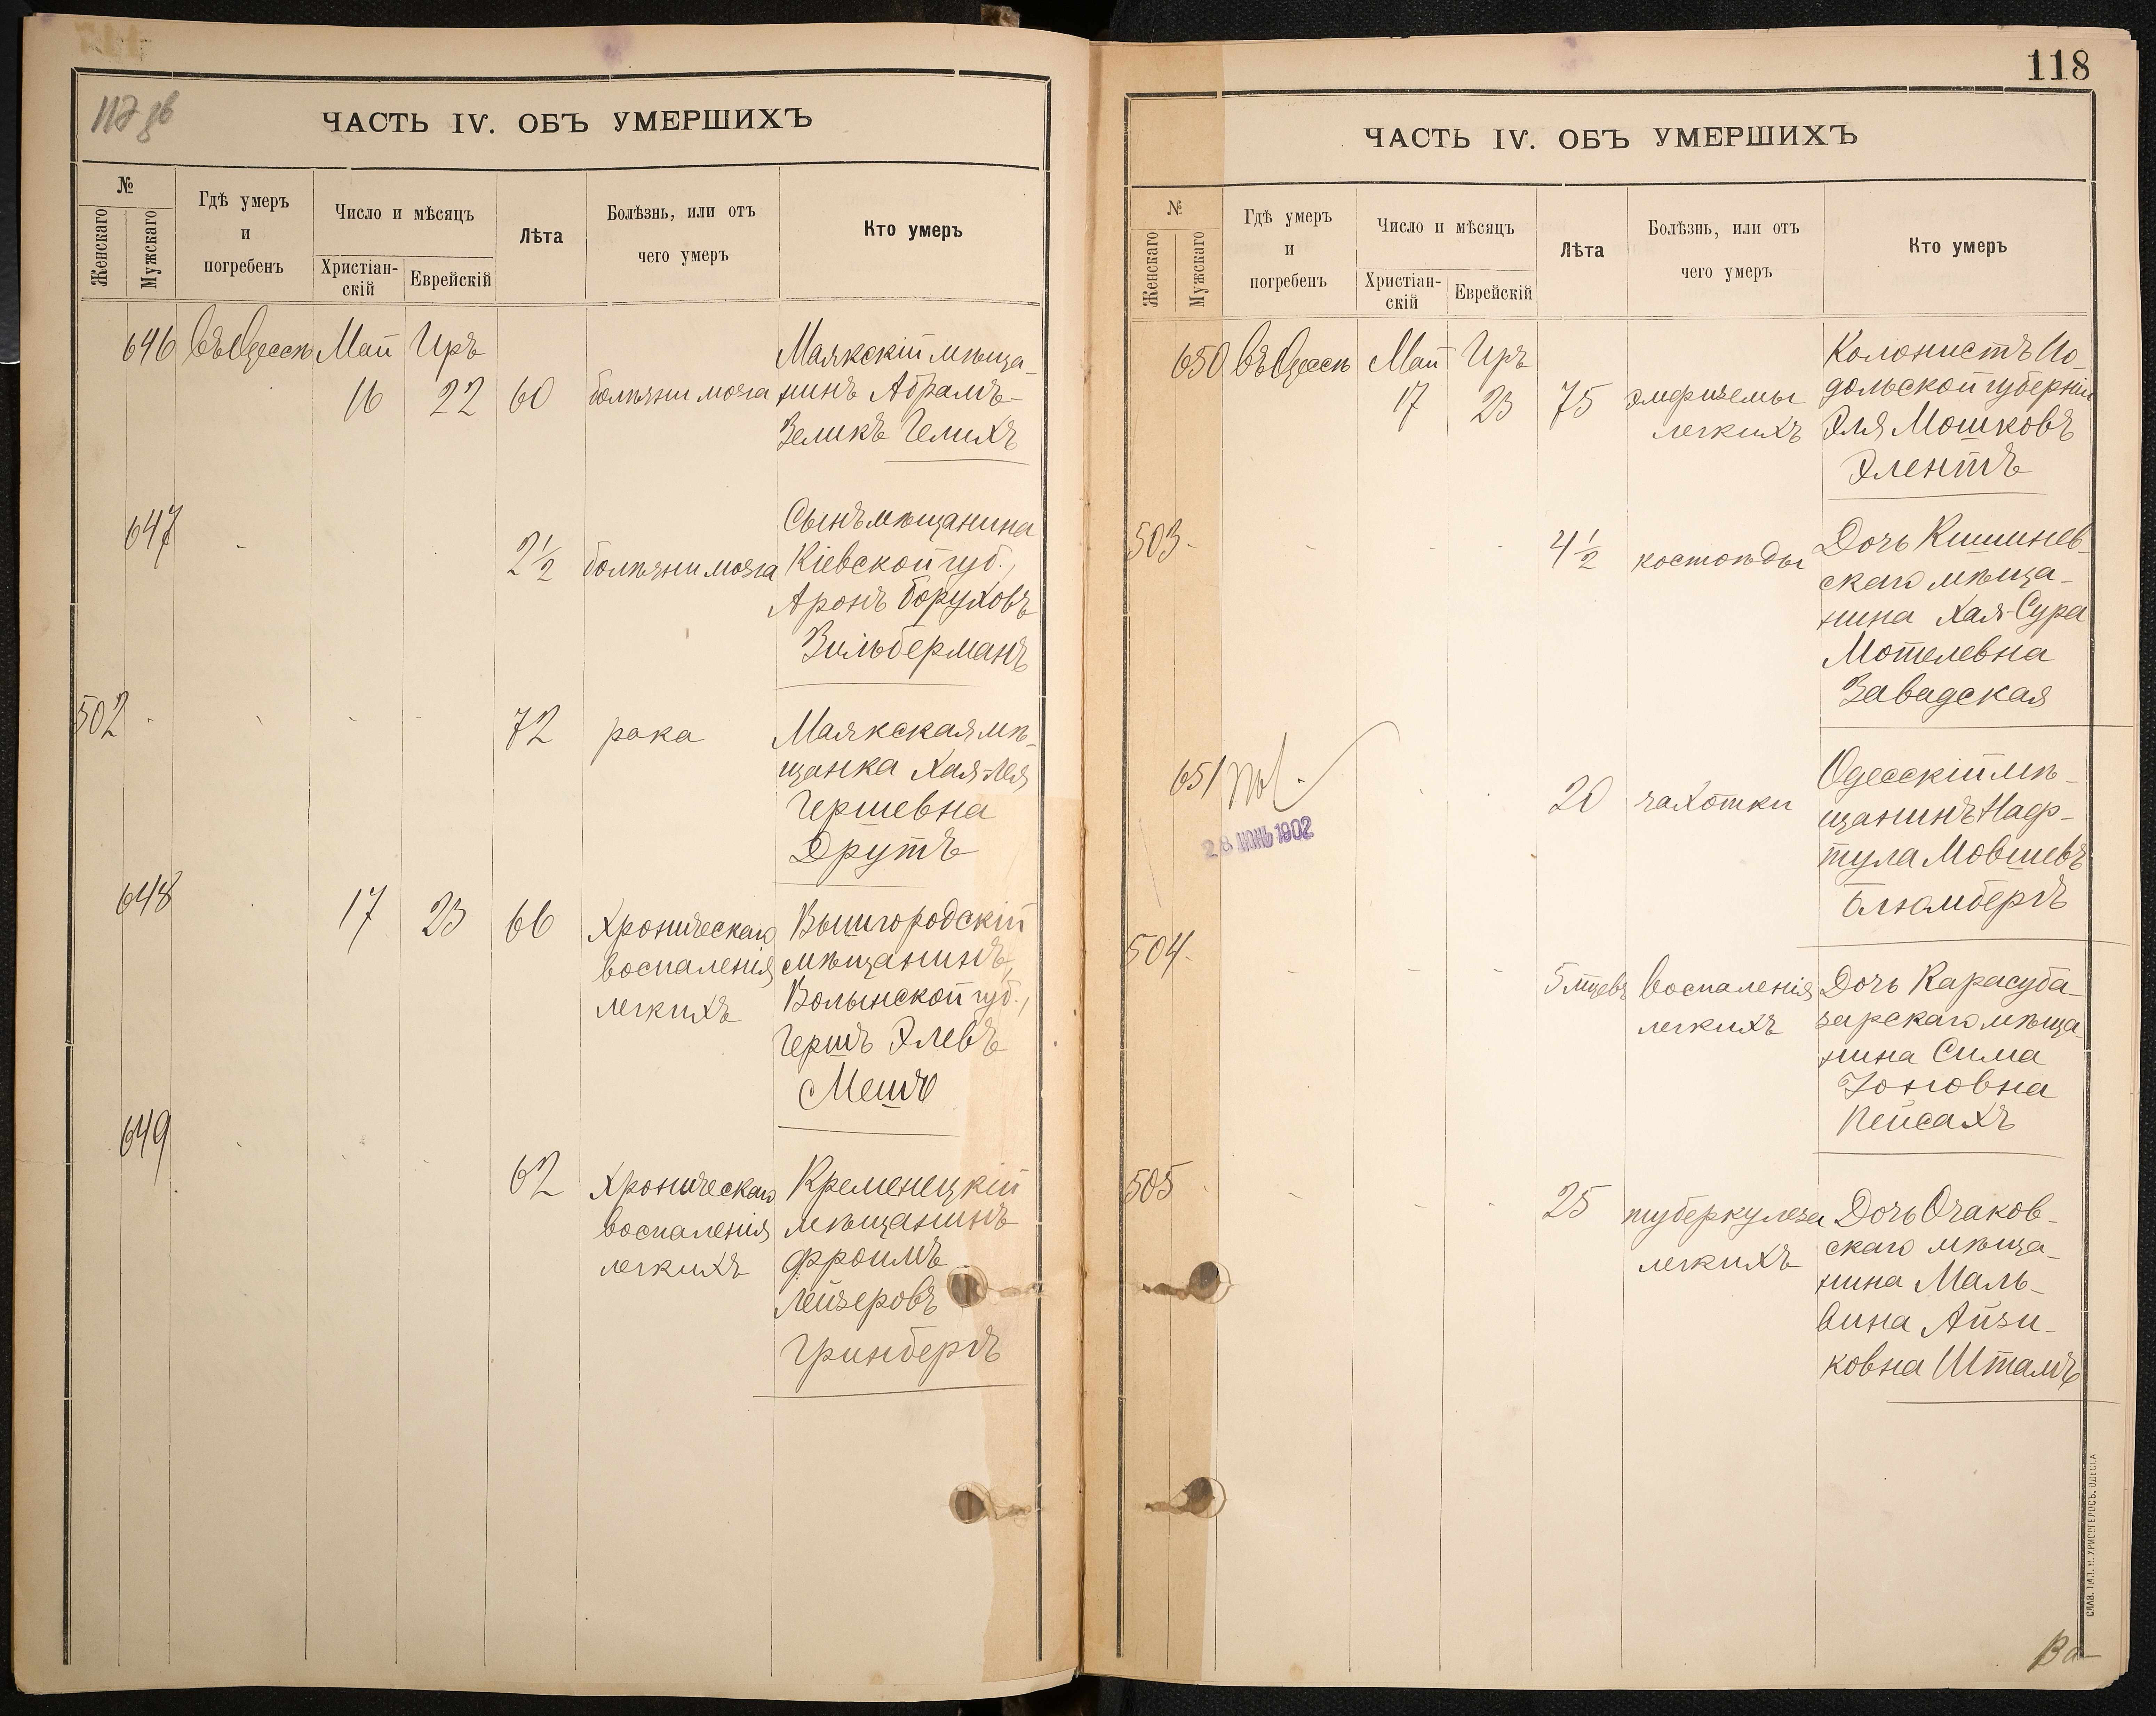 117 об
ЧАСТЬ IV. ОБЪ УМЕРШИХЪ
№
Женскаго
Мужскаго
Гдѣ умеръ
и
погребенъ
Число и мѣсяцъ
Христіан-
скій
Еврейскій
Лѣта
Болѣзнь, или отъ
чего умеръ
Кто умеръ
646 въ Одессѣ Май Иръ
16 22 60 болѣзни мозга
Маякскій мѣща-
нинъ Абрамъ-
Зеликъ Гелихъ
647 2½ болѣзни мозга
Сынъ мѣщанина
Кіевской губ.,
Аронъ Боруховъ
Зильберманъ
502 72 рака
Маякская мѣ-
щанка Хая-Лея
Гершевна
Друтъ
648 17 23 66
Хроническаго
воспаленія
легкихъ
Вышгородскій
мѣщанинъ,
Волынской губ.,
Гершъ Элевъ
Мешъ
649 62
Хроническаго
воспаленія
легкихъ
Кременецкій
мѣщанинъ
Фроимъ
Лейзеровъ
Гринбергъ
118
ЧАСТЬ IV. ОБЪ УМЕРШИХЪ
№
Женскаго
Мужскаго
Гдѣ умеръ
и
погребенъ
Число и мѣсяцъ
Христіан-
скій
Еврейскій
Лѣта
Болѣзнь, или отъ
чего умеръ
Кто умеръ
650 въ Одессѣ Май Иръ
17 23 75
эмфиземы
легкихъ
Колонистъ По-
дольской губерніи
Эля Мошковъ
Элентъ
503 4½ костоѣды
Дочь Кишинев-
скаго мѣща-
нина Хая-Сура
Мотелевна
Завадская
651
28 ИЮНЬ 1902
20 чахотки
Одесскій мѣ-
щанинъ Наф-
тула Мовшевъ
Блюмбергъ
504 5 мцевъ
воспаленія
легкихъ
Дочь Карасуба-
зарскаго мѣща-
нина Сима
Іоновна
Пейсахъ
505 25
туберкулеза
легкихъ
Дочь Очаков-
скаго мѣща-
нина Маль-
вина Айзи-
ковна Штамъ
СЛАВ. ТИП. Н. ХРИСОГЕЛОСЪ. ОДЕССА
Ва-